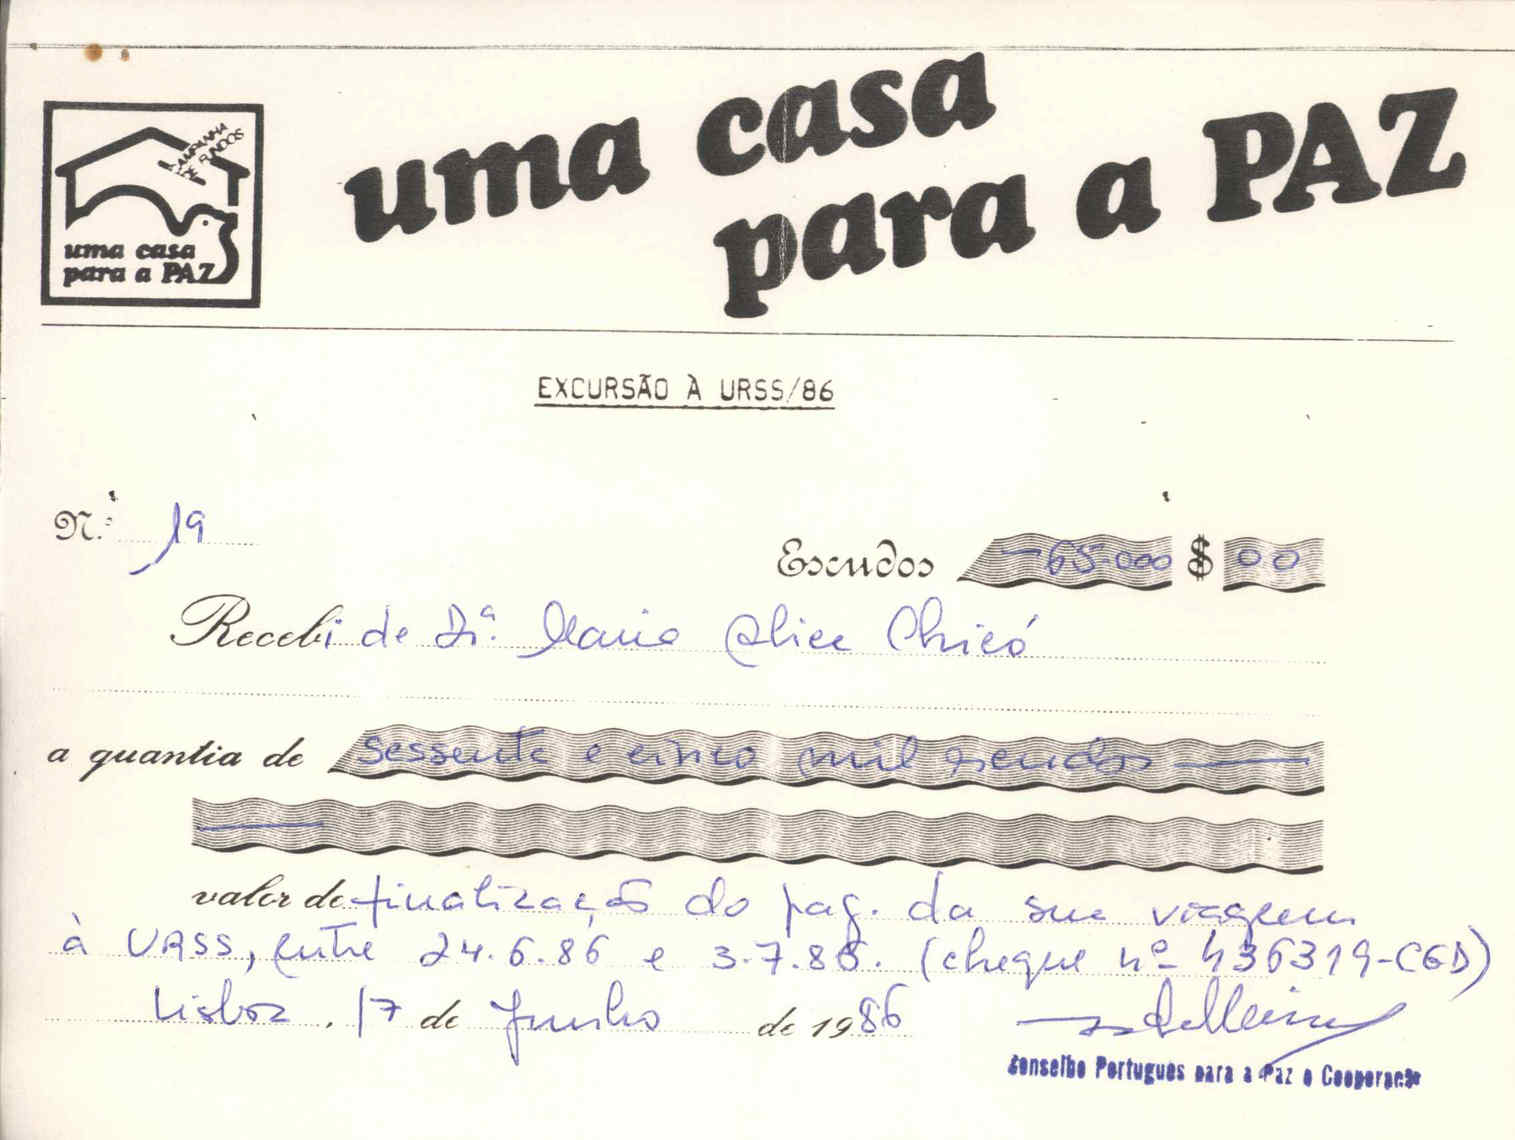 CAMPANHA
DE FUNDOS
uma casa
para a PAZ
uma casa
para a PAZ
EXCURSÃO À URSS/86
N.º 19
Escudos —65.000 $ 00
Recebi de Dr.ª Maria Alice Chicó
a quantia de sessenta e cinco mil escudos —
valor de finalização do pag. da sua viagem
à URSS, entre 24.6.86 e 3.7.86. (cheque nº 436319-CGD)
Lisboa, 17 de Junho de 1986
Conselho Português para a Paz e Cooperação